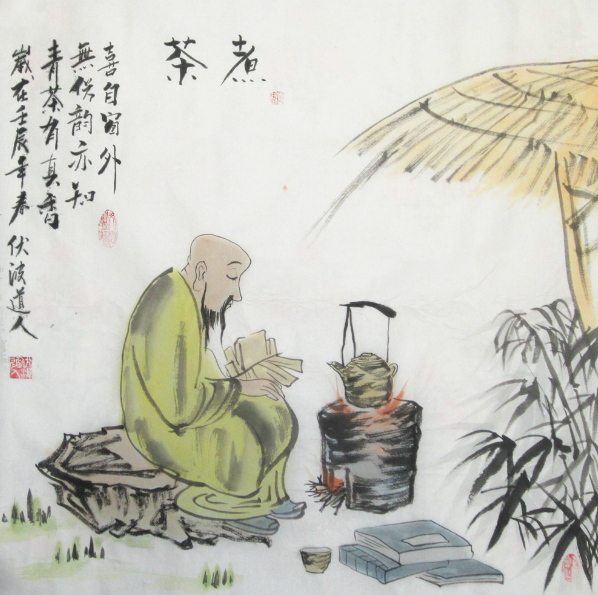 煮茶
喜自窗外
無俗韵亦知
青茶有真香
歲在壬辰年春 伏波道人